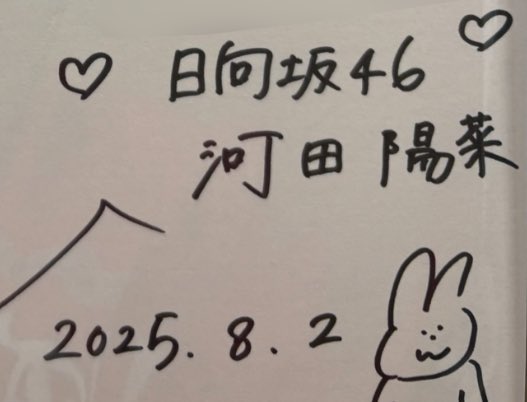 ♡ 日向坂46 ♡
河田陽菜
2025.8.2